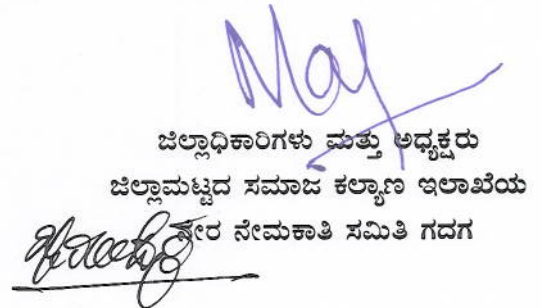 ಜಿಲ್ಲಾಧಿಕಾರಿಗಳು ಮತ್ತು ಅಧ್ಯಕ್ಷರು
ಜಿಲ್ಲಾಮಟ್ಟದ ಸಮಾಜ ಕಲ್ಯಾಣ ಇಲಾಖೆಯ
ನೇರ ನೇಮಕಾತಿ ಸಮಿತಿ ಗದಗ